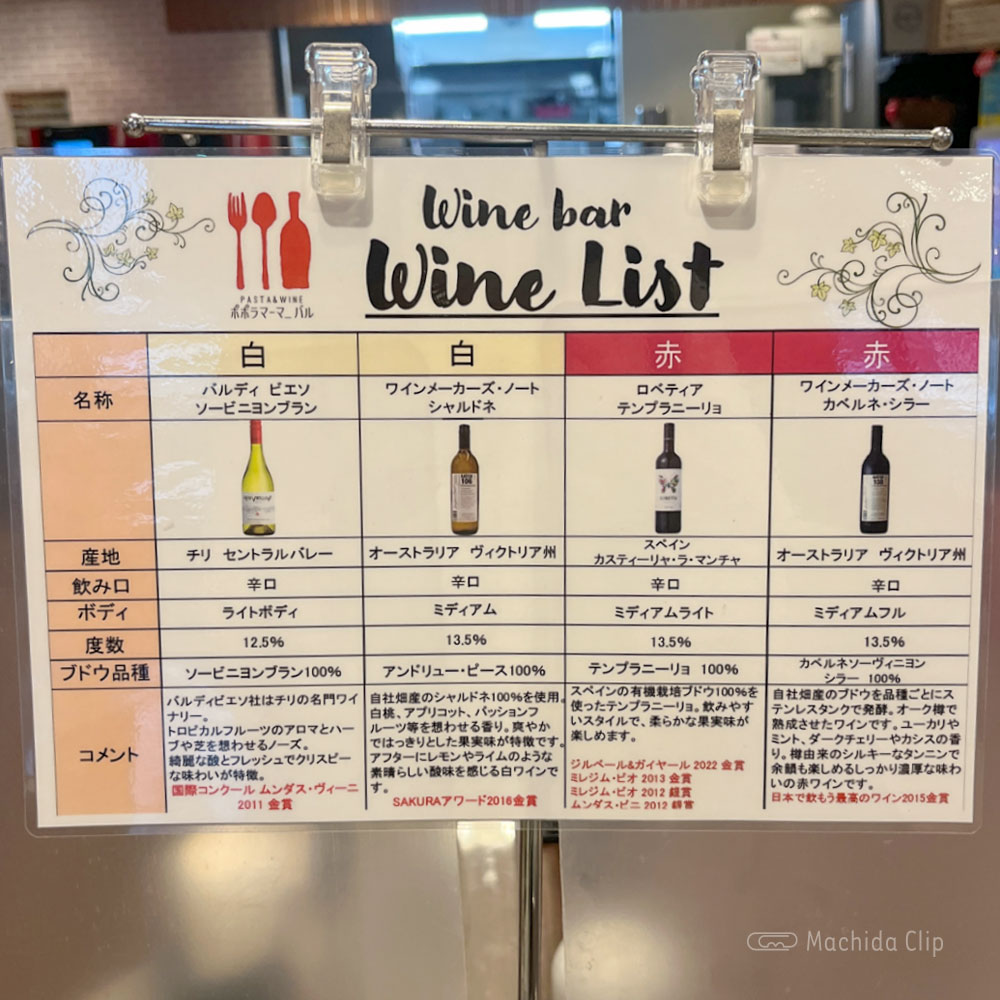 Wine bar
Wine List
PASTA&WINE
ポポラマーマ_バル
白
白
赤
赤
名称
バルディ ビエソ
ソービニヨンブラン
ワインメーカーズ・ノート
シャルドネ
ロベティア
テンプラニーリョ
ワインメーカーズ・ノート
カベルネ・シラー
産地
チリ セントラルバレー
オーストラリア ヴィクトリア州
スペイン
カスティーリャ・ラ・マンチャ
オーストラリア ヴィクトリア州
飲み口
辛口
辛口
辛口
辛口
ボディ
ライトボディ
ミディアム
ミディアムライト
ミディアムフル
度数
12.5%
13.5%
13.5%
13.5%
ブドウ品種
ソービニヨンブラン100%
アンドリュー・ピース100%
テンプラニーリョ 100%
カベルネソーヴィニヨン
シラー 100%
コメント
バルディビエソ社はチリの名門ワイ
ナリー。
トロピカルフルーツのアロマとハー
ブや芝を想わせるノーズ。
綺麗な酸とフレッシュでクリスピー
な味わいが特徴。
国際コンクール ムンダス・ヴィーニ
2011 金賞
自社畑産のシャルドネ100%を使用。
白桃、アプリコット、パッションフ
ルーツ等を想わせる香り。爽やか
ではっきりとした果実味が特徴です。
アフターにレモンやライムのような
素晴らしい酸味を感じる白ワインで
す。
SAKURAアワード2016金賞
スペインの有機栽培ブドウ100%を
使ったテンプラニーリョ。飲みやす
いスタイルで、柔らかな果実味が
楽しめます。
ジルベール&ガイヤール 2022 金賞
ミレジム・ビオ 2013 金賞
ミレジム・ビオ 2012 銀賞
ムンダス・ビニ 2012 銀賞
自社畑産のブドウを品種ごとにス
テンレスタンクで発酵。オーク樽で
熟成させたワインです。ユーカリや
ミント、ダークチェリーやカシスの香
り。樽由来のシルキーなタンニンで
余韻も楽しめるしっかり濃厚な味わ
いの赤ワインです。
日本で飲もう最高のワイン2015金賞
Machida Clip